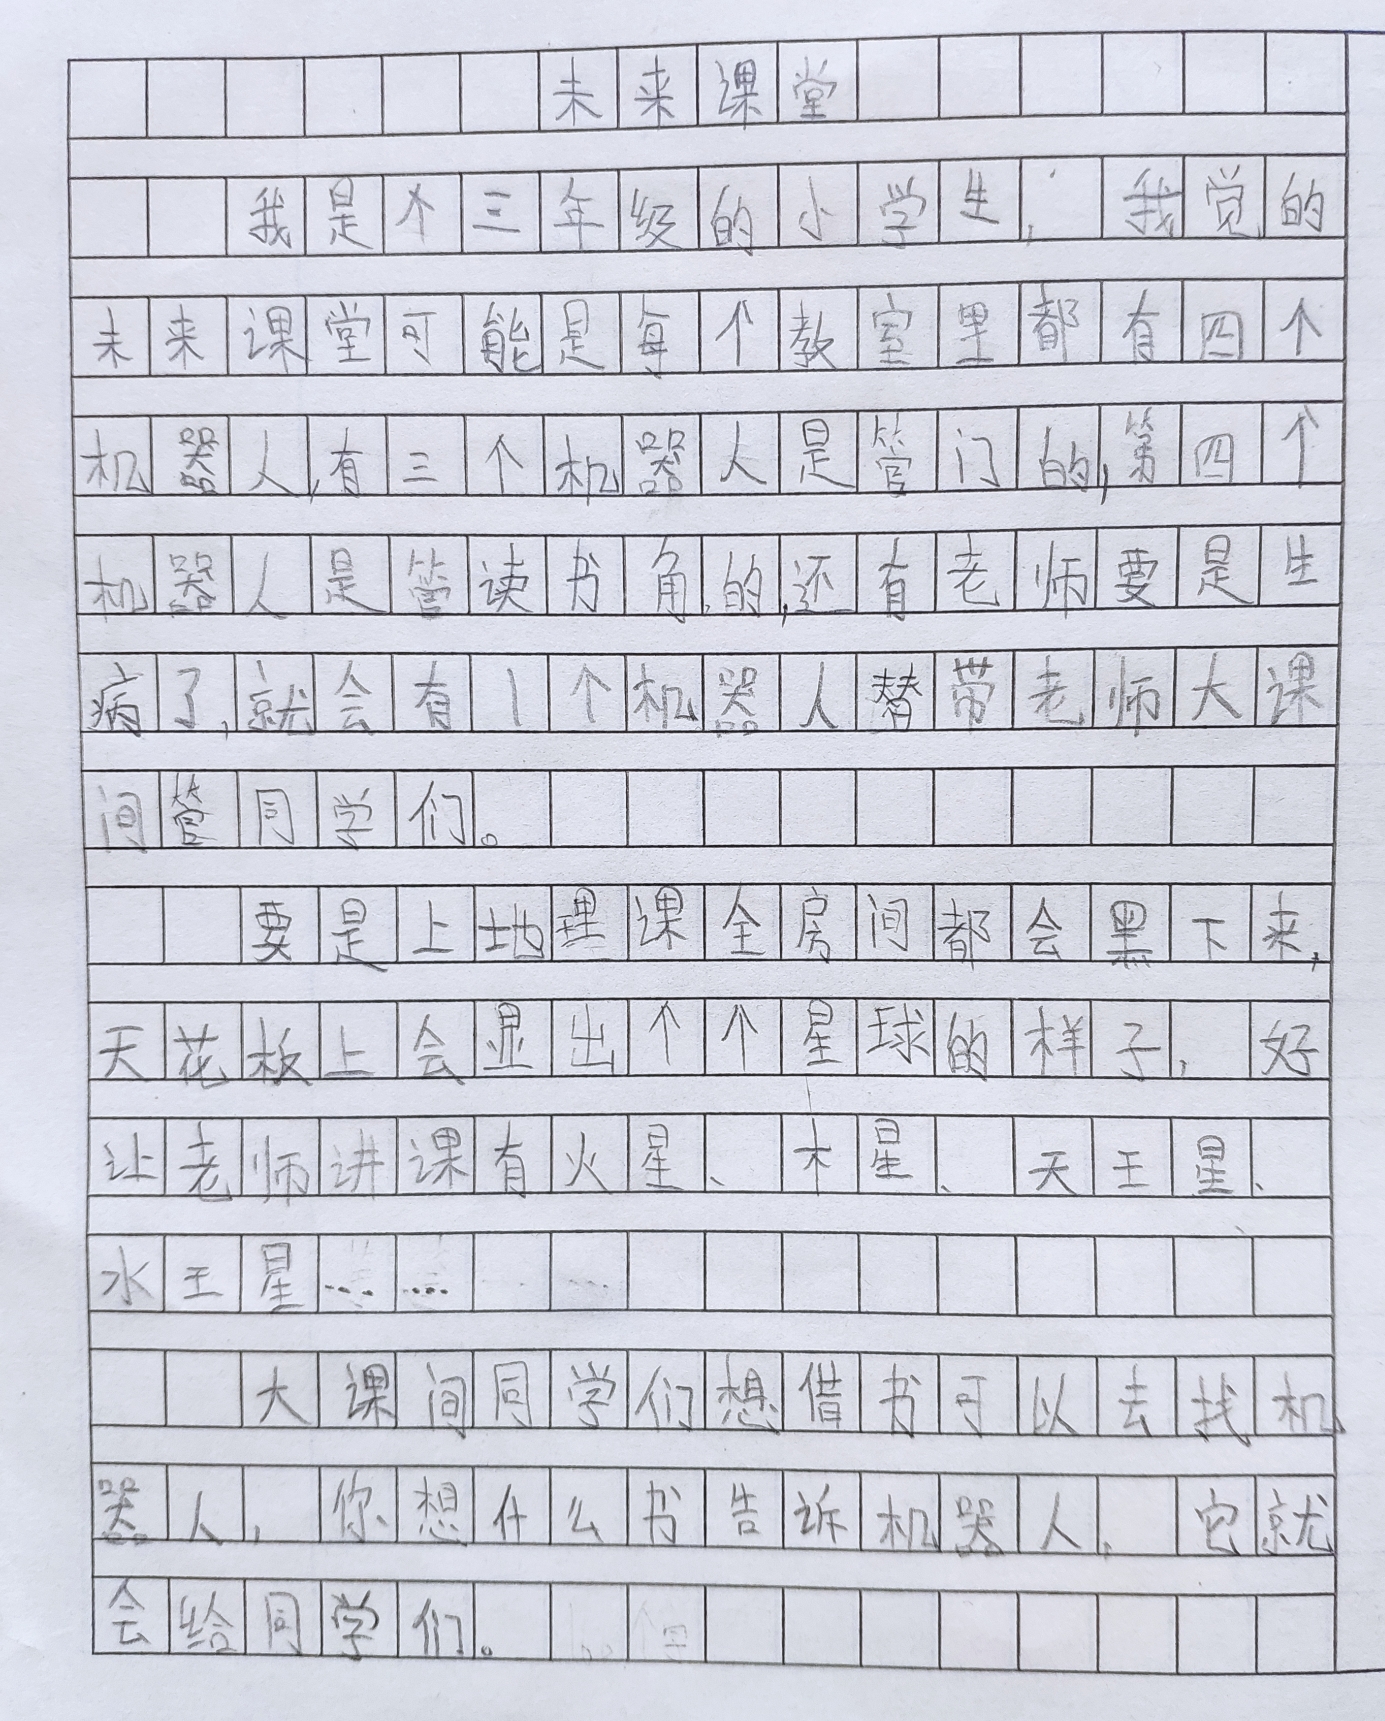 未来课堂
我是个三年级的小学生，我觉的
未来课堂可能是每个教室里都有四个
机器人，有三个机器人是管门的，第四个
机器人是管读书角的，还有老师要是生
病了，就会有1个机器人替带老师大课
间管同学们。
要是上地理课全房间都会黑下来，
天花板上会显出个个星球的样子，好
让老师讲课有火星、木星、天王星、
水王星……
大课间同学们想借书可以去找机
器人，你想什么书告诉机器人，它就
会给同学们。